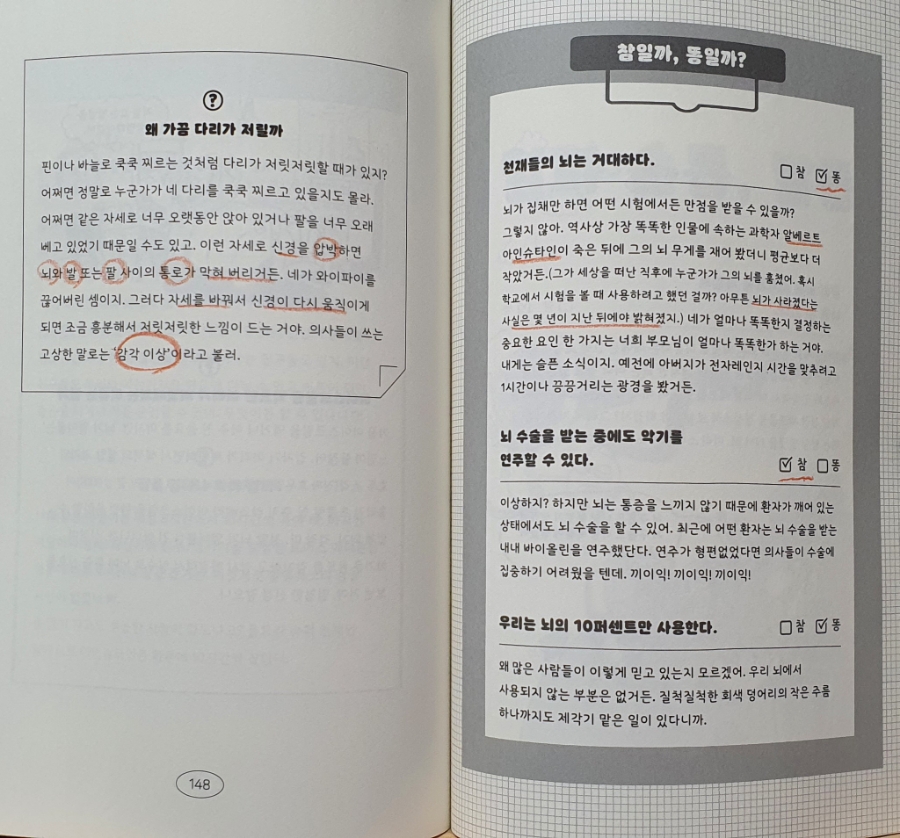 ?
왜 가끔 다리가 저릴까
핀이나 바늘로 쿡쿡 찌르는 것처럼 다리가 저릿저릿할 때가 있지?
어쩌면 정말로 누군가가 네 다리를 쿡쿡 찌르고 있을지도 몰라.
어쩌면 같은 자세로 너무 오랫동안 앉아 있거나 팔을 너무 오래
베고 있었기 때문일 수도 있고. 이런 자세로 신경을 압박하면
뇌와 발 또는 팔 사이의 통로가 막혀 버리거든. 네가 와이파이를
끊어버린 셈이지. 그러다 자세를 바꿔서 신경이 다시 움직이게
되면 조금 흥분해서 저릿저릿한 느낌이 드는 거야. 의사들이 쓰는
고상한 말로는 '감각 이상'이라고 불러.
148
참일까, 똥일까?
천재들의 뇌는 거대하다.
참 똥
뇌가 집채만 하면 어떤 시험에서든 만점을 받을 수 있을까?
그렇지 않아. 역사상 가장 똑똑한 인물에 속하는 과학자 알베르트
아인슈타인이 죽은 뒤에 그의 뇌 무게를 재어 봤더니 평균보다 더
작았거든.(그가 세상을 떠난 직후에 누군가가 그의 뇌를 훔쳤어. 혹시
학교에서 시험을 볼 때 사용하려고 했던 걸까? 아무튼 뇌가 사라졌다는
사실은 몇 년이 지난 뒤에야 밝혀졌지.) 네가 얼마나 똑똑한지 결정하는
중요한 요인 한 가지는 너희 부모님이 얼마나 똑똑한가 하는 거야.
내게는 슬픈 소식이지. 예전에 아버지가 전자레인지 시간을 맞추려고
1시간이나 끙끙거리는 광경을 봤거든.
뇌 수술을 받는 중에도 악기를
연주할 수 있다.
참 똥
이상하지? 하지만 뇌는 통증을 느끼지 않기 때문에 환자가 깨어 있는
상태에서도 뇌 수술을 할 수 있어. 최근에 어떤 환자는 뇌 수술을 받는
내내 바이올린을 연주했단다. 연주가 형편없었다면 의사들이 수술에
집중하기 어려웠을 텐데. 끼이익! 끼이익! 끼이익!
우리는 뇌의 10퍼센트만 사용한다.
참 똥
왜 많은 사람들이 이렇게 믿고 있는지 모르겠어. 우리 뇌에서
사용되지 않는 부분은 없거든. 질척질척한 회색 덩어리의 작은 주름
하나까지도 제각기 맡은 일이 있다니까.